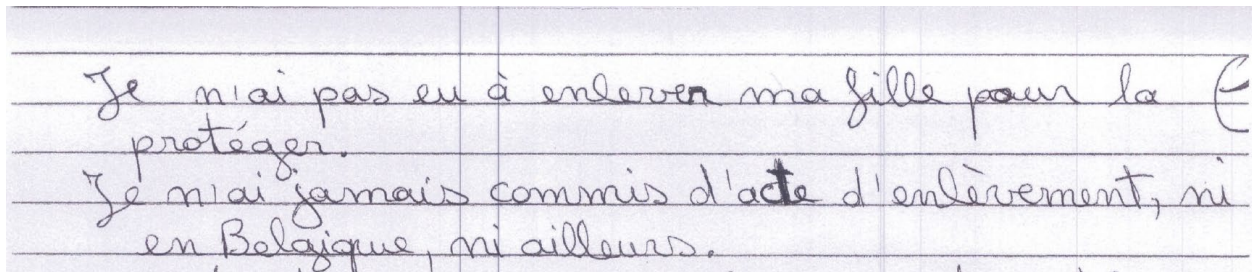 Je n'ai pas eu à enlever ma fille pour la
protéger.
Je n'ai jamais commis d'acte d'enlèvement, ni
en Belgique, ni ailleurs.